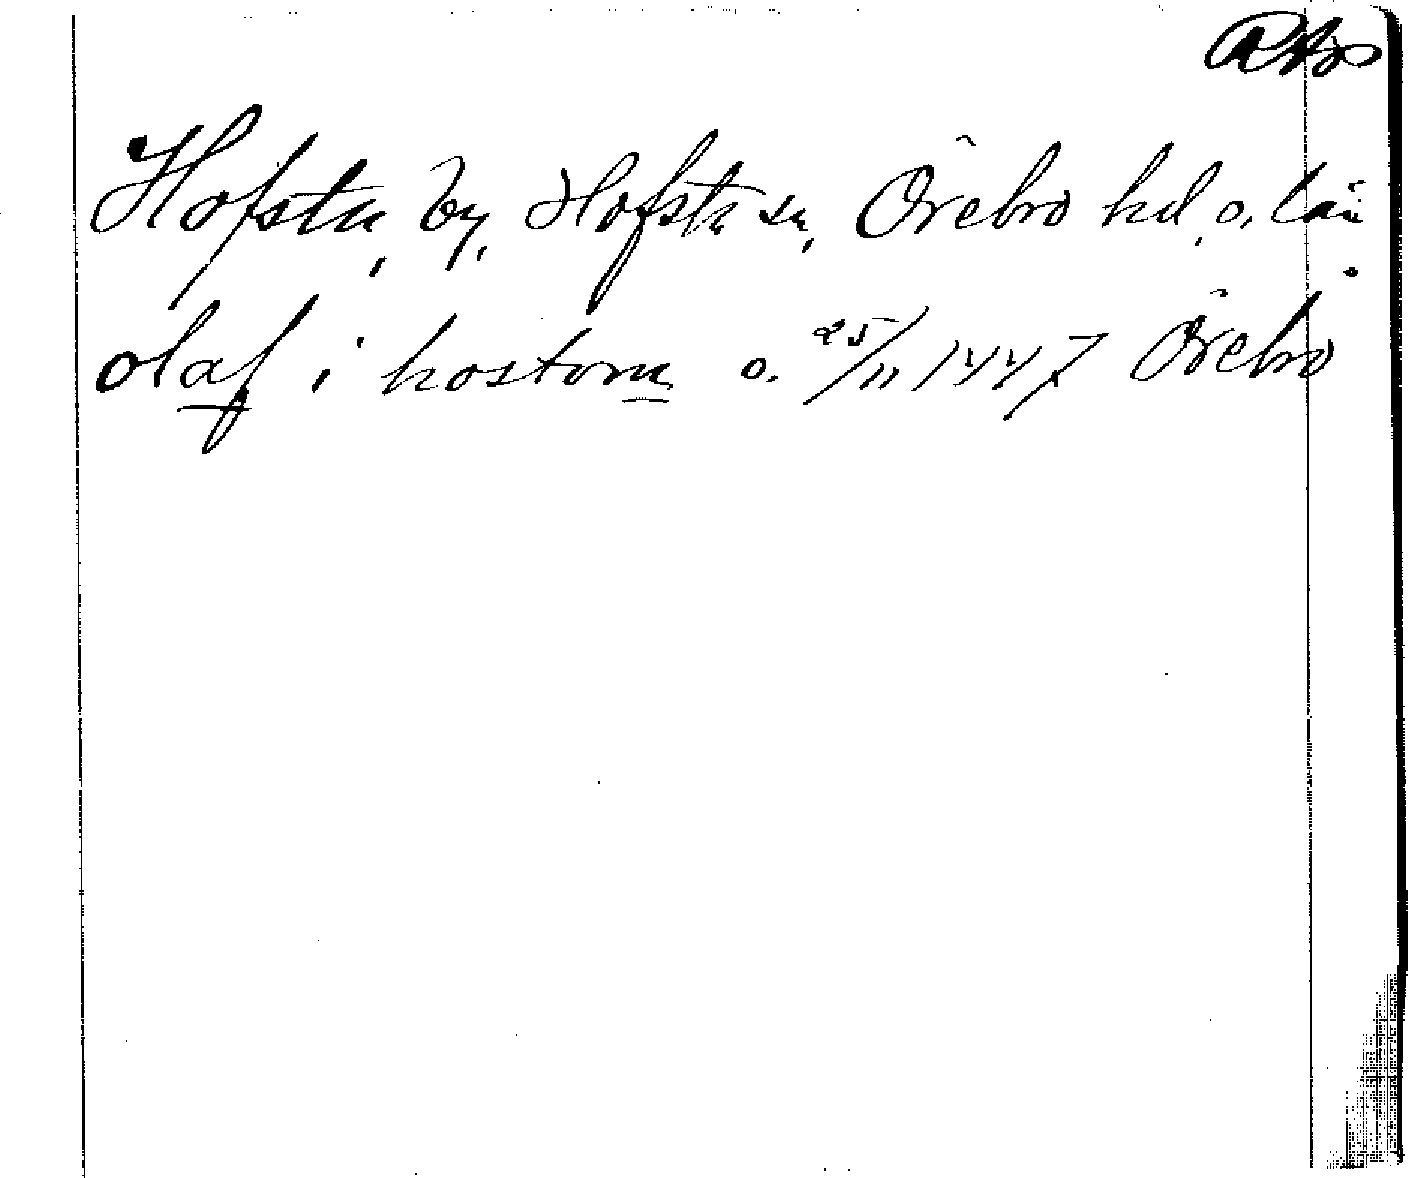 RAp
Hofsta, by, Hofsta sn, Örebro hd, o. län
olaf i hostom o. 25/11 1447 Örebro